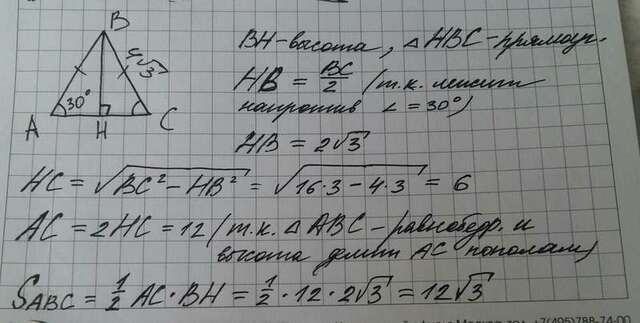 B
4√3
30°
A H C
BH-высота, △HBC-прямоуг.
HB = BC/2 /т.к. лежит
напротив ∠ = 30°)
HB = 2√3
HC = √BC²-HB² = √16·3-4·3 = 6
AC = 2HC = 12 /т.к. △ABC-равнобедр. и
высота делит AC пополам)
S ABC = 1/2 AC·BH = 1/2·12·2√3 = 12√3
+7(495)788-74-00